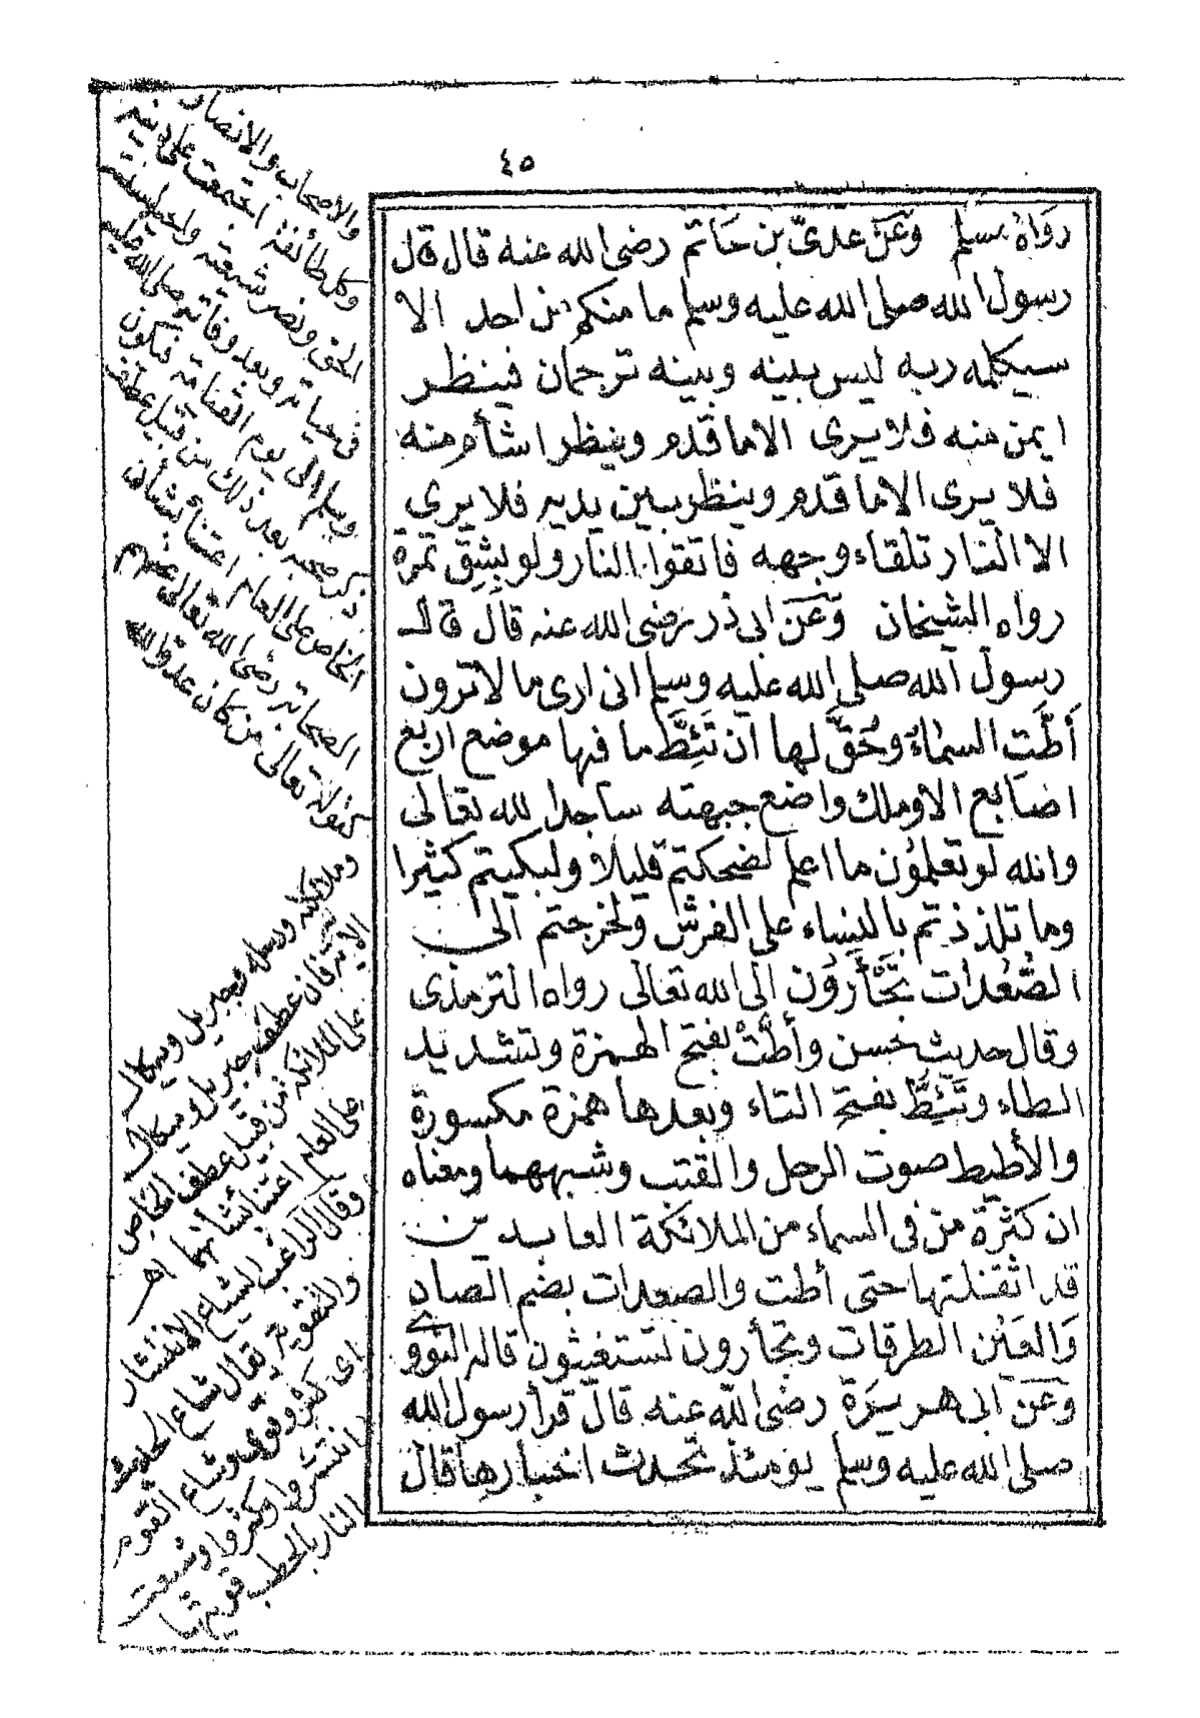 ٤٥
رَوَاهُ مسلم وَعَنْ عدىّ بن حَاتم رضى الله عنه قال قال
رسول الله صلى الله عليه وسلم ما منكم من احد الا
سيكلمه ربه ليس بينه وبينه ترجمان فينظر
ايمن منه فلا يرى الا ما قدم وينظر اشأم منه
فلا يرى الا ما قدم وينظر بين يديه فلا يرى
الا النار تلقاء وجهه فاتقوا النار ولو بشِقِّ تمرة
رواه الشيخان وَعَنْ ابى ذر رضى الله عنه قال قال
رسول الله صلى الله عليه وسلم انى ارى ما لا ترون
أطّت السماءُ وحُقَّ لها ان تَئِطَّ ما فيها موضع اربع
اصابع الا وملك واضع جبهته ساجدا لله تعالى
والله لو تعلمون ما اعلم لضحكتم قليلا ولبكيتم كثيرا
وما تلذذتم بالنساء على الفرش ولخرجتم الى
الصُّعدات تَجْأَرُون الى الله تعالى رواه الترمذى
وقال حديث حسن وأطّتْ بفتح الهمزة وتشديد
الطاء وتَئِطَّ بفتح التاء وبعدها همزة مكسورة
والأطيط صوت الرحل والقتب وشبههما ومعناه
ان كثرة من فى السماء من الملائكة العابدين
قد اثقلتها حتى أطت والصعدات بضم الصاد
وَالعَيْن الطرقات وتجأرون تستغيثون قاله النووى
وَعَنْ ابى هريرَة رضى الله عنه قال قرأ رسول الله
صلى الله عليه وسلم يومئذ تحدث اخبارها قال
والاصحاب والانصار
وكل طائفة اجتمعت على
الحق ونصر شريعته
فى حياته وبعد وفاته صلى الله عليه
وسلم الى يوم القيامة فيكون
ذكر صحبه بعد ذلك من قبيل عطف
الخاص على العام اعتناء بشأن
الصحابة رضى الله تعالى عنهم
كقوله تعالى من كان عدوا لله
وملائكته ورسله وجبريل وميكال
الاية فان عطف جبريل وميكال
على الملائكة من قبيل عطف الخاص
على العام اعتناء بشأنهما اهـ
وقال الراغب الشياع الانتشار
والتقوية يقال شاع الحديث
اى كثر وقوى وشاع القوم
انتشروا وكثروا وشيعت
النار بالحطب قويتها